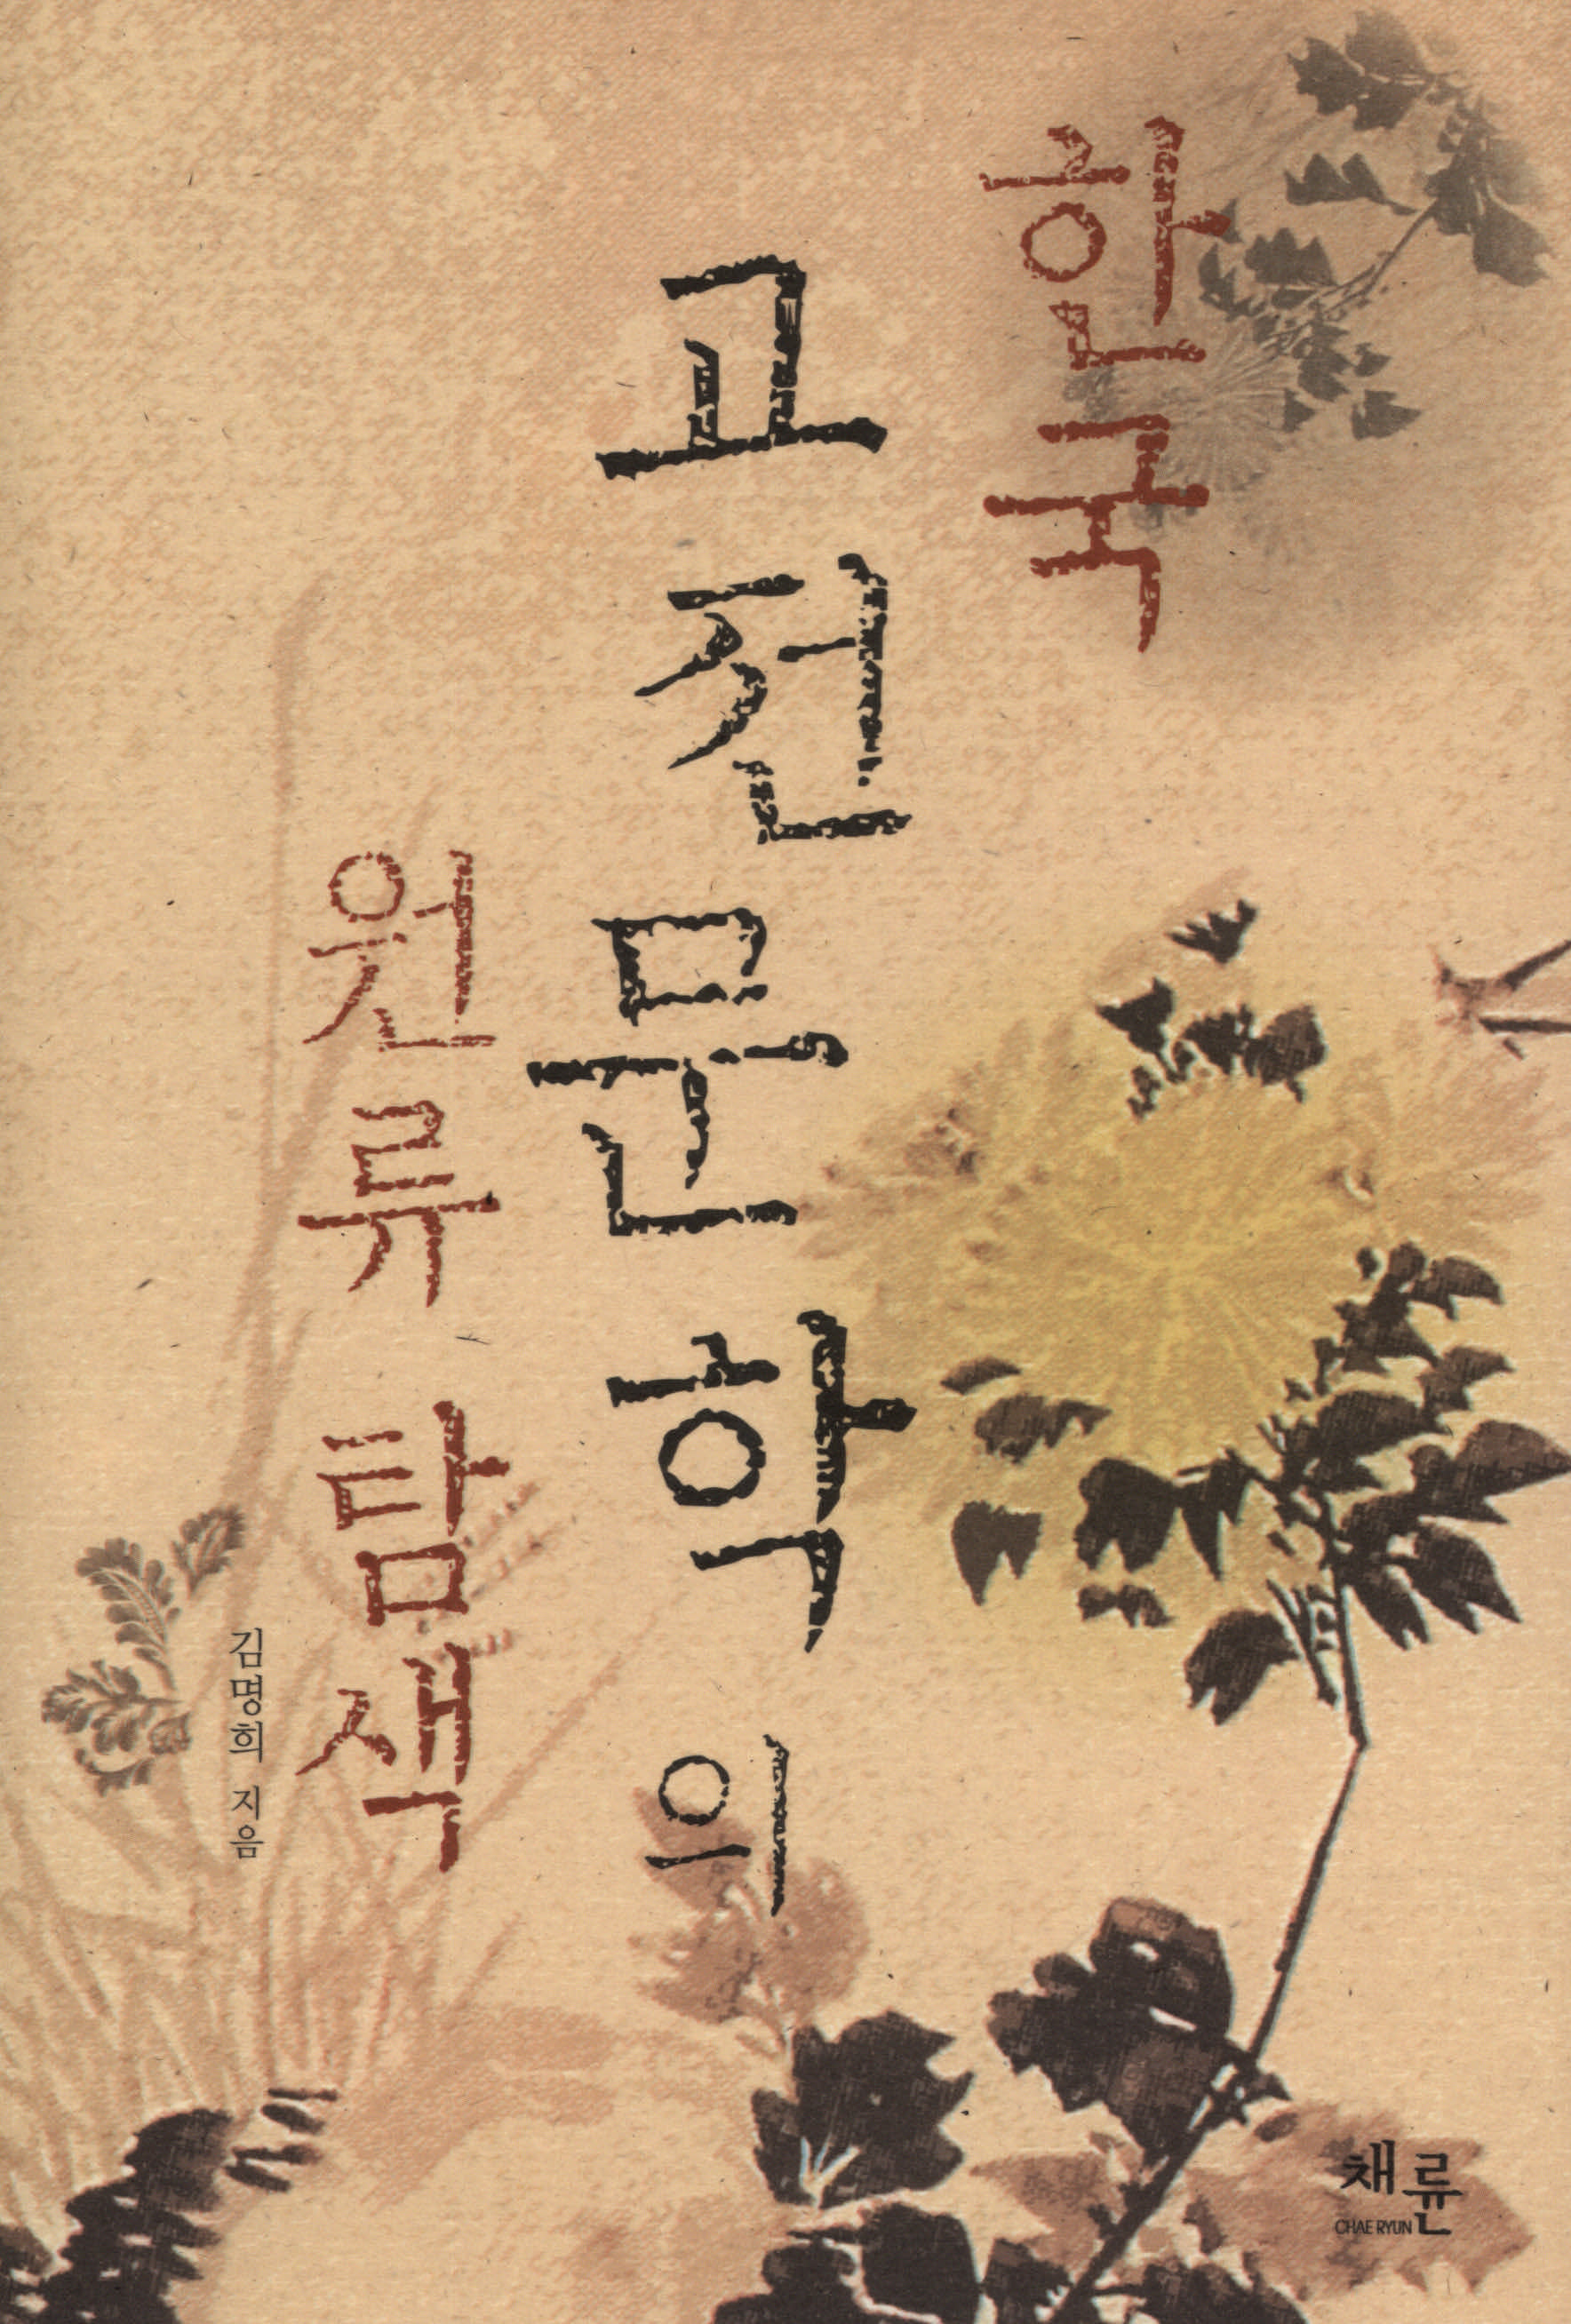 한국
고전문학의
원류탐색
김명희 지음
채륜
CHAE RYUN